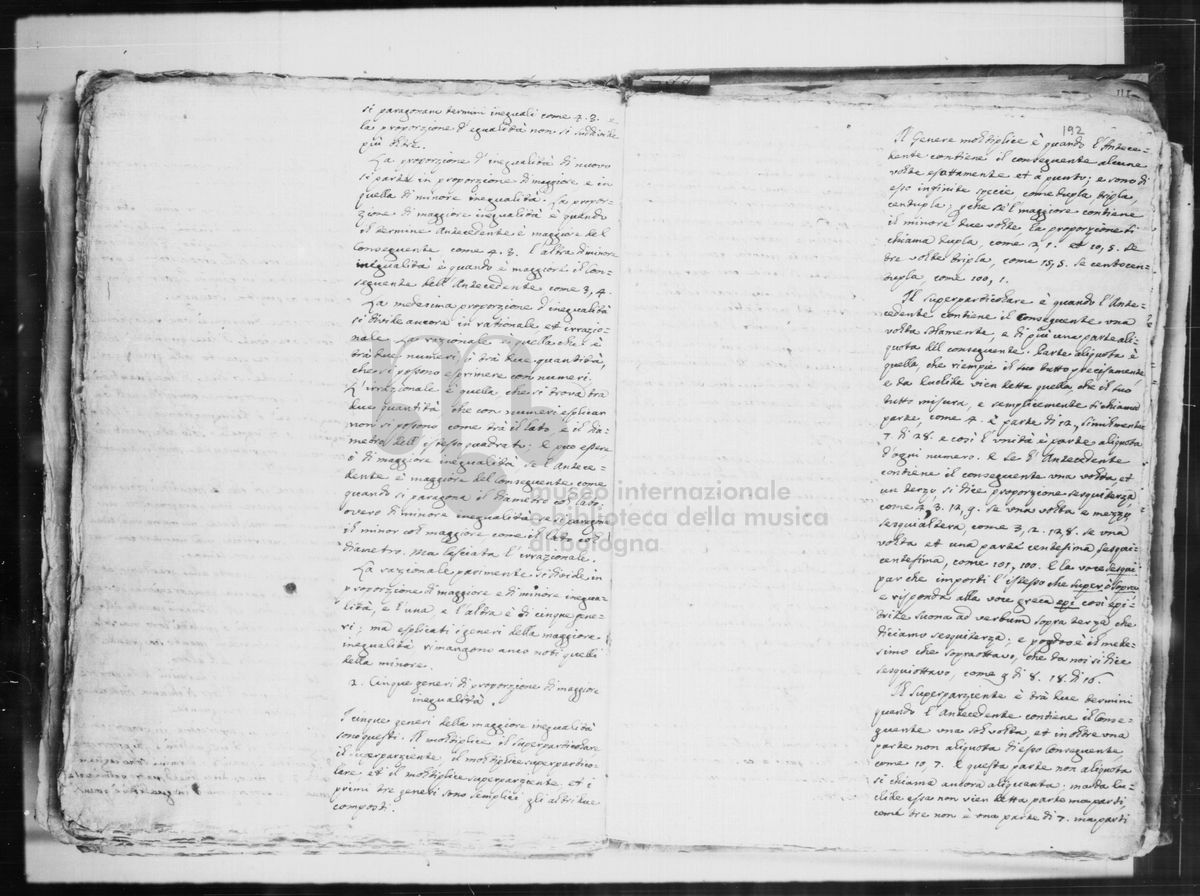 si paragonano termini ineguali come 4. 3. e
la proporzione d'egualità non si suddivide
più oltre.
La proporzione d'inegualità di nuovo
si parte in proporzione di maggiore e in
quella di minore inegualità. La propor-
zione di maggiore inegualità è quando
il termine Antecedente è maggiore del
Conseguente come 4. 3. l'altra di minore
inegualità è quando è maggiore il Con-
seguente dell'Antecedente come 3, 4.
La medesima proporzione d'inegualità
si divide ancora in rationale et irrazio-
nale. La razionale è quella che è
trà due numeri, ò trà due quantità,
che si possono esprimere con numeri.
L'irrazionale è quella, che si trova tra
due quantità che con numeri esplicar
non si possono come trà il lato, e il dia-
metro dell'istesso quadrato. e può essere
ò di maggiore inegualità se l'Antece-
dente è maggiore del Conseguente come
quando si paragona il diametro col lato,
overo di minore inegualità se si paragona
il minor col maggiore come il lato col
diametro. Ma lasciata l'irrazionale.
La razionale parimente si divide in
proporzione di maggiore e di minore inegua-
lità, e l'una e l'altra è di cinque gene-
ri; ma esplicati i generi della maggiore
inegualità rimangono anco noti quelli
della minore.
2. Cinque generi di proporzione di maggiore
inegualità.
I cinque generi della maggiore inegualità
sono questi. Il moltiplice il superparticolare
il superparziente, il moltiplice superpartico-
lare, et il moltiplice superparziente, et i
primi tre generi sono semplici gli altri due
composti.
III
192
Il Genere moltiplice è quando l'Antece-
dente contiene il conseguente alcune
volte esattamente et a punto; e sono di
esso infinite specie come dupla tripla,
centupla; perche se'l maggiore contiene
il minore due volte la proporzione si
chiama dupla, come 2, 1. et 10, 5. se
tre volte tripla, come 15, 5. se cento cen-
tupla come 100, 1.
Il superparticolare è quando l'Ante-
cedente contiene il Conseguente una
volta solamente, e di più una parte ali-
quota del conseguente. Parte aliquota è
quella, che riempie il suo tutto precisamente,
e da Euclide vien detta quella, che il suo
tutto misura, e semplicemente si chiama
parte, come 4. è parte di 12, similmente
7 di 28. e così l'unità è parte aliquota
d'ogni numero. e se l'Antecedente
contiene il conseguente una volta, et
un terzo, si dice proporzione sesquiterza,
come 4, 3. 12, 9. se una volta e mezzo
sesquialtera, come 3, 2. 12, 8. se una
volta et una parte centesima sesqui-
centesima, come 101, 100. E la voce sesqui
par che importi l'istesso che super ò sopra
e risponda alla voce greca epi così epi-
trite suona ad verbum sopra terza che
diciamo sesquiterza; e pogdoo è il mede-
simo che sopraottavo, che da noi si dice
sesquiottavo, come 9 di 8. 18. di 16.
Il superparziente è trà due termini
quando l'Antecedente contiene il Conse-
guente una sol volta, et inoltre una
parte non aliquota di esso Conseguente,
come 10, 7. e questa parte non aliquota
si chiama ancora aliquanta; ma da Eu-
clide essa non vien detta parte ma parti,
come tre non è una parte di 7. ma parti
museo internazionale
e biblioteca della musica
di bologna